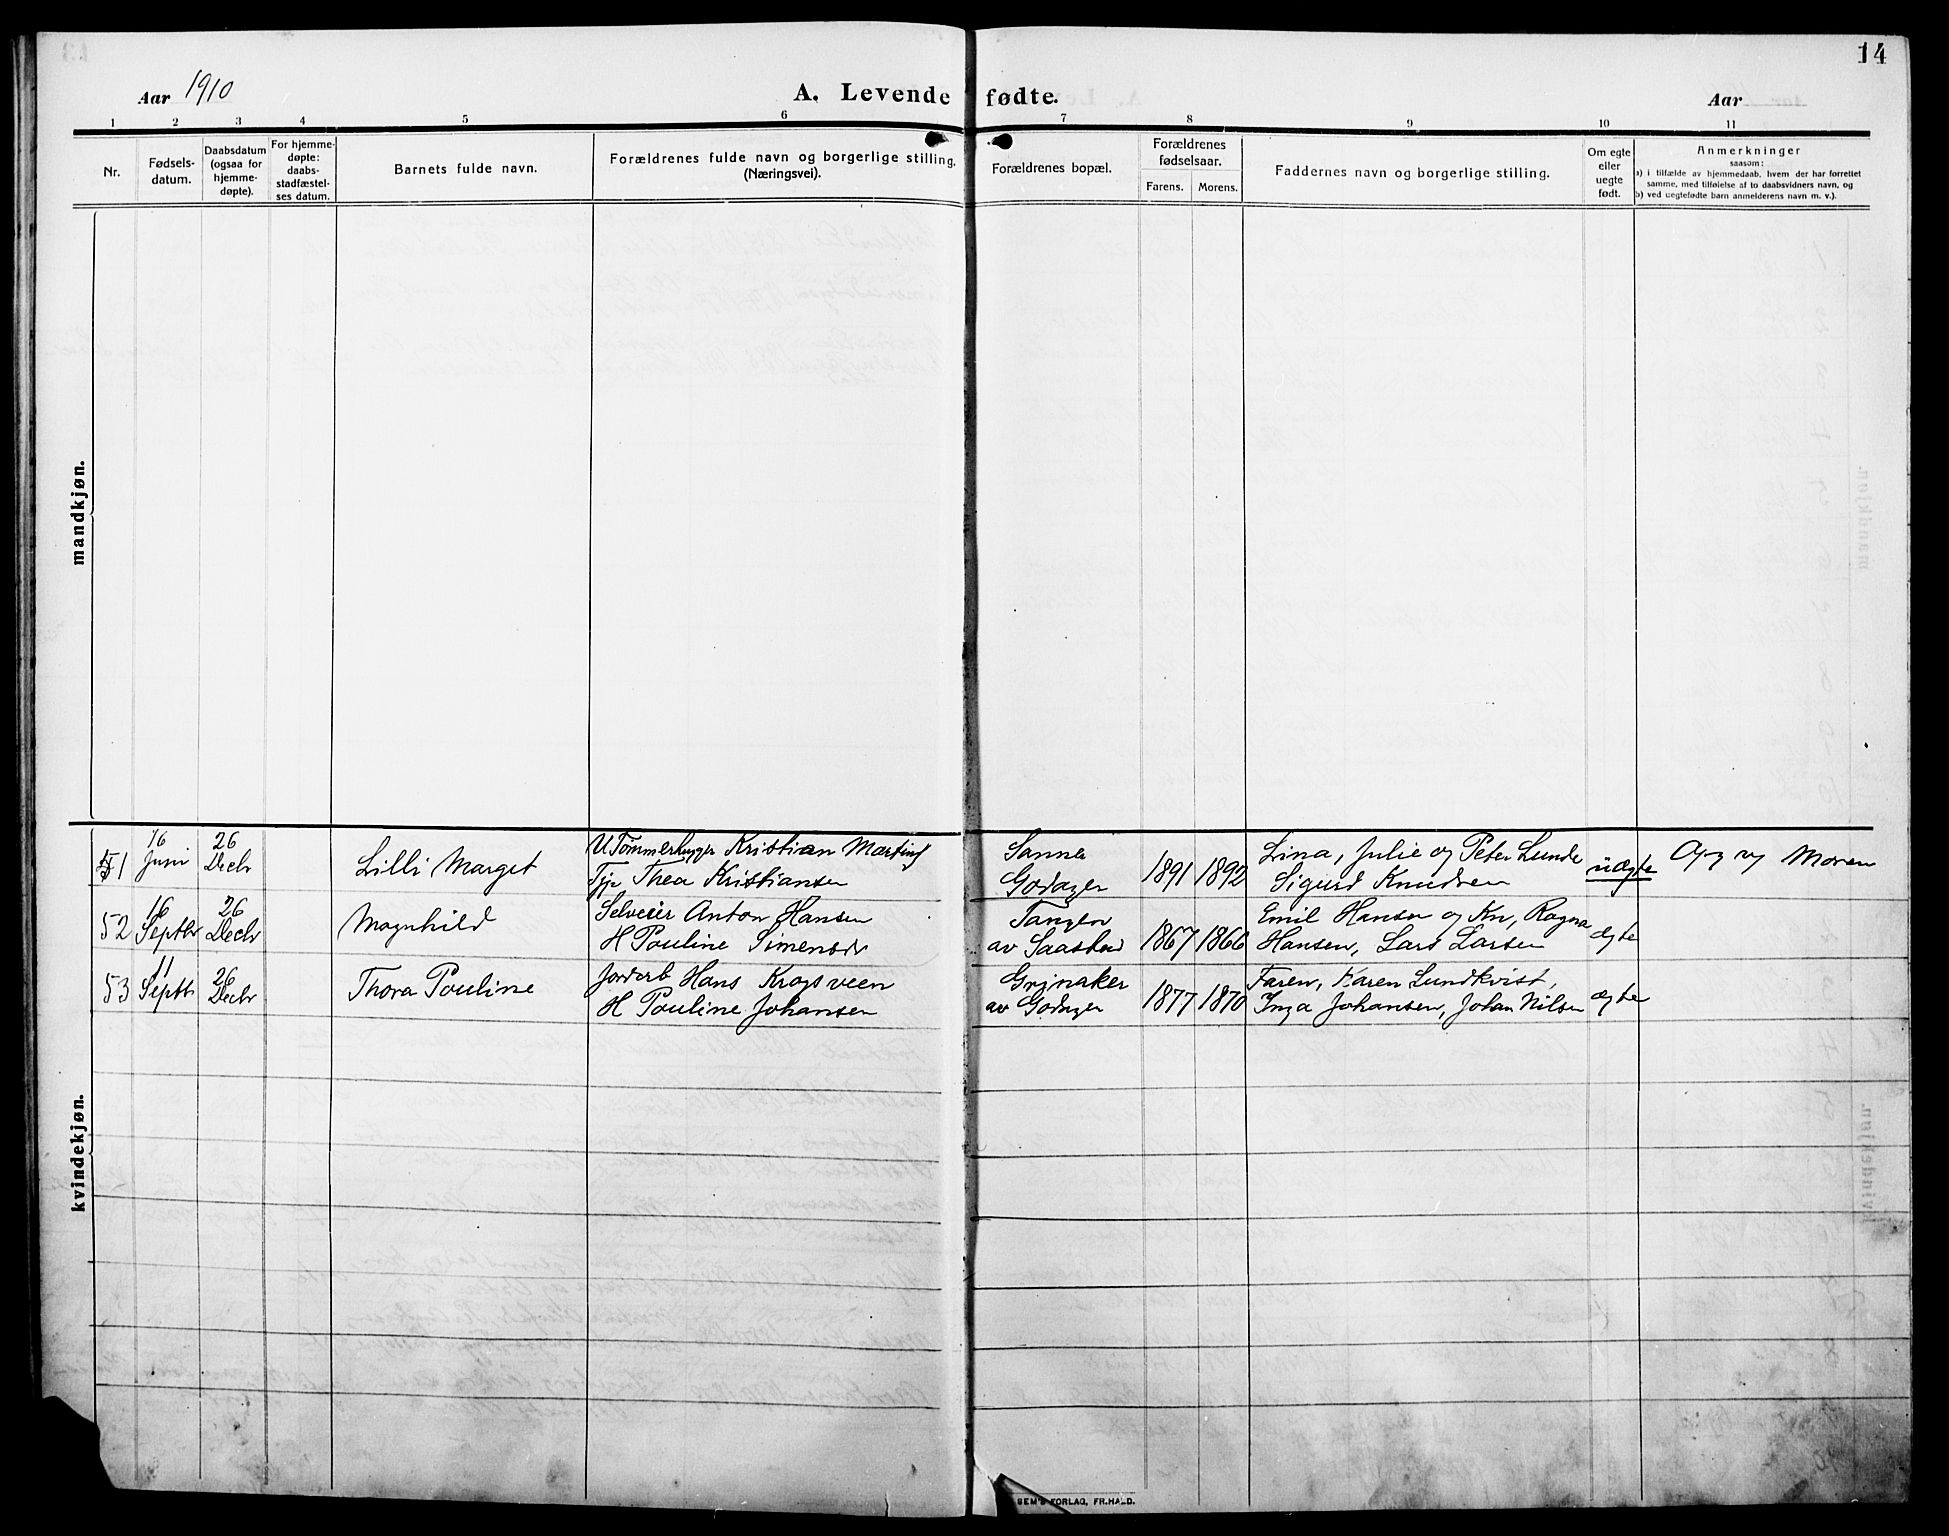 14
Aar 1910
A. Levende fødte.
Aar
1 2 3 4 5 6 7 8 9 10 11
Nr.
Fødsels-
datum.
Daabsdatum
(ogsaa for
hjemme-
døpte).
For hjemme-
døpte:
daabs-
stadfæstel-
ses datum.
Barnets fulde navn.
Forældrenes fulde navn og borgerlige stilling.
(Næringsvei).
Forældrenes bopæl.
Forældrenes
fødselsaar.
Farens. Morens.
Faddernes navn og borgerlige stilling.
Om egte
eller
uegte
født.
Anmerkninger
saasom:
a) i tilfælde av hjemmedaab, hvem der har forrettet
samme, med tilføielse av to daabsvidners navn, og
b) ved uegtefødte barn anmelderens navn m. v.).
mandkjøn.
kvindekjøn.
51
16
Juni
26
Decbr
Lilli Marget
U Tømmerhugger Kristian Martins
Tje Thea Kristiansen
Sanner
Godager
1891 1892
Lina, Julie og Peter Lunde
Sigurd Knudsen
uægte
Moren
52
16
Septbr
26
Decbr
Magnhild
Selveier Anton Hansen
H Pauline Simensdr
Tangen
av Saastad
1867 1866
Emil Hansen og Kn, Ragna
Hansen, Lars Larsen
ægte
53
11
Septbr
26
Decbr
Thora Pauline
Jordarb Hans Krogsveen
H Pauline Johansen
Grinaker
av Godager
1877 1870
Faren, Karen Lundkvist,
Inga Johansen, Johan Nilsen
ægte
SEM'S FORLAG, FR.HALD.